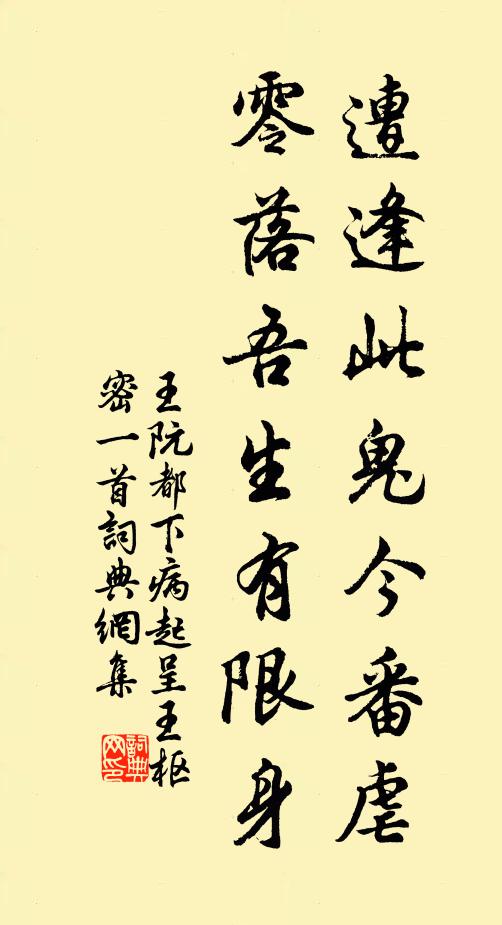 遭逢此鬼今番虐
零落吾生有限身
王阮都下病起呈王枢
密一首詞典網集
詞典网印